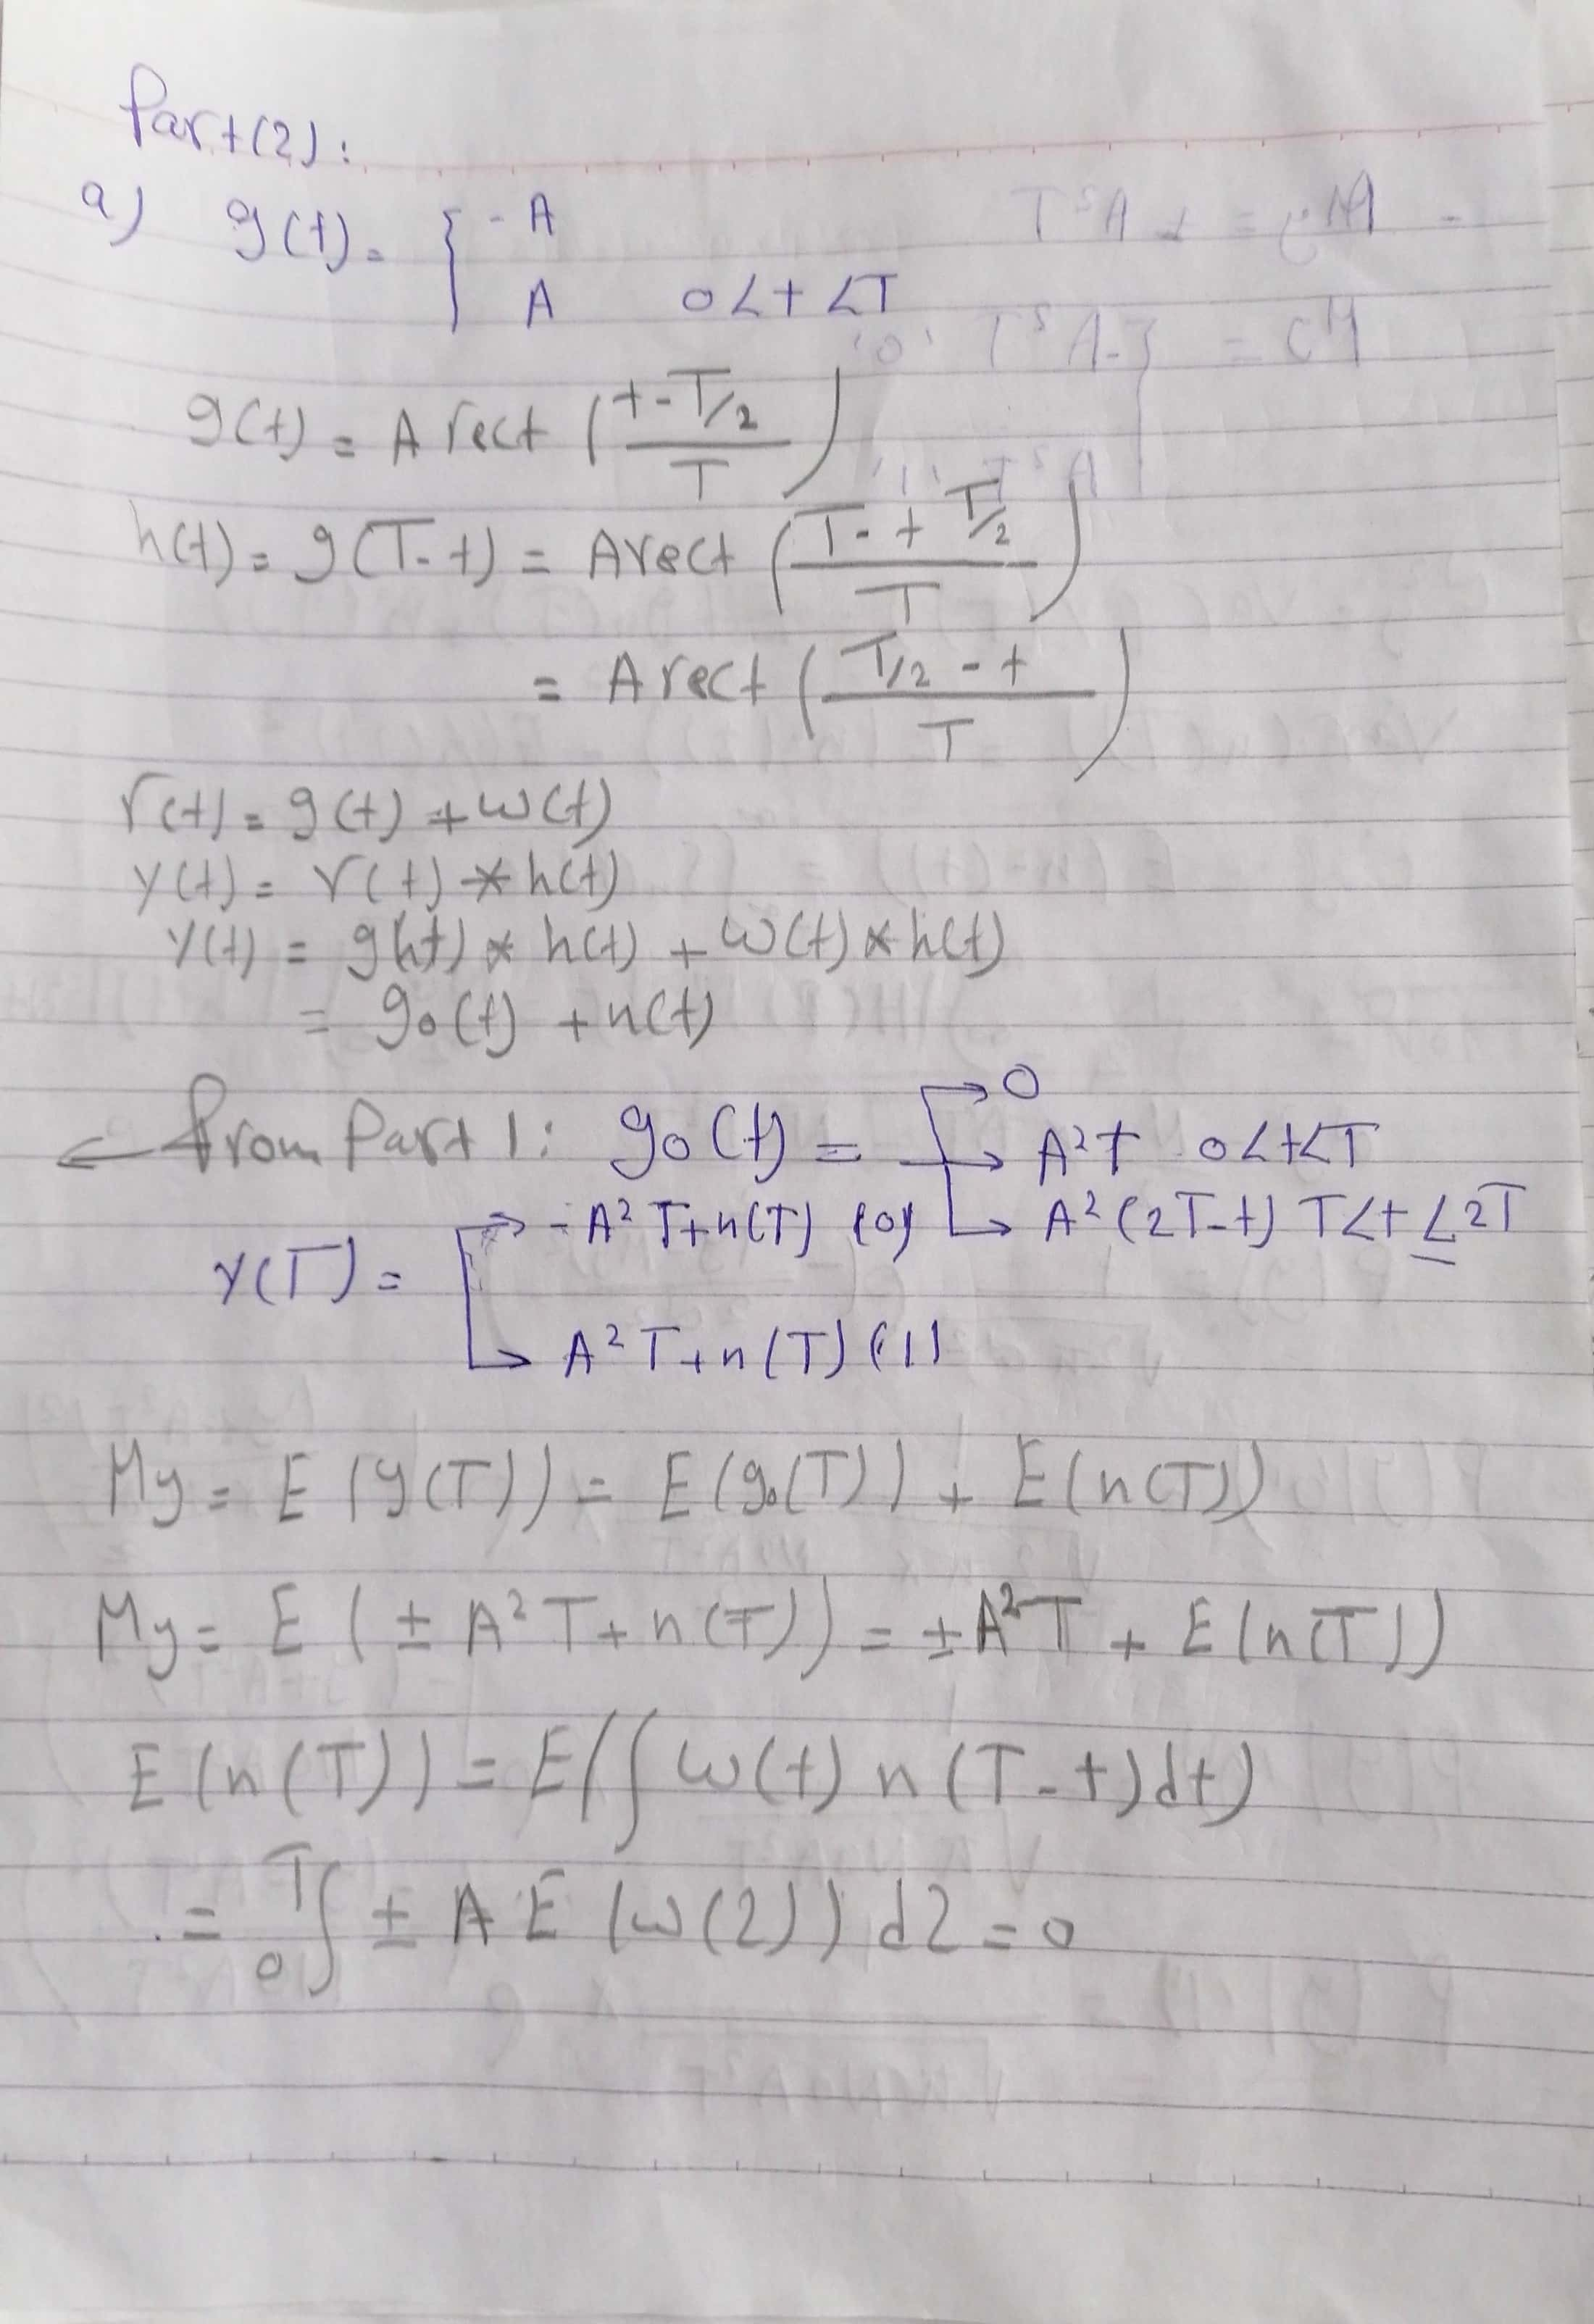 Part(2):
a) g(t) = { -A
A 0<t<T
g(t) = A rect ( (t - T/2) / T )
h(t) = g(T-t) = A rect ( (T - t T/2) / T )
= A rect ( (T/2 - t) / T )
r(t) = g(t) + w(t)
y(t) = r(t) * h(t)
y(t) = g(t) * h(t) + w(t) * h(t)
= g0(t) + n(t)
← From Part 1: g0(t) = → 0
→ A²t 0<t<T
→ A²(2T-t) T<t≤2T
y(T) = → -A²T+n(T) (0)
→ A²T+n(T) (1)
My = E(y(T)) = E(g0(T)) + E(n(T))
My = E(±A²T+n(T)) = ±A²T + E(n(T))
E(n(T)) = E(∫ w(t) n(T-t)dt)
= T ∫ 0 ± A E (w(2)) d2 = 0